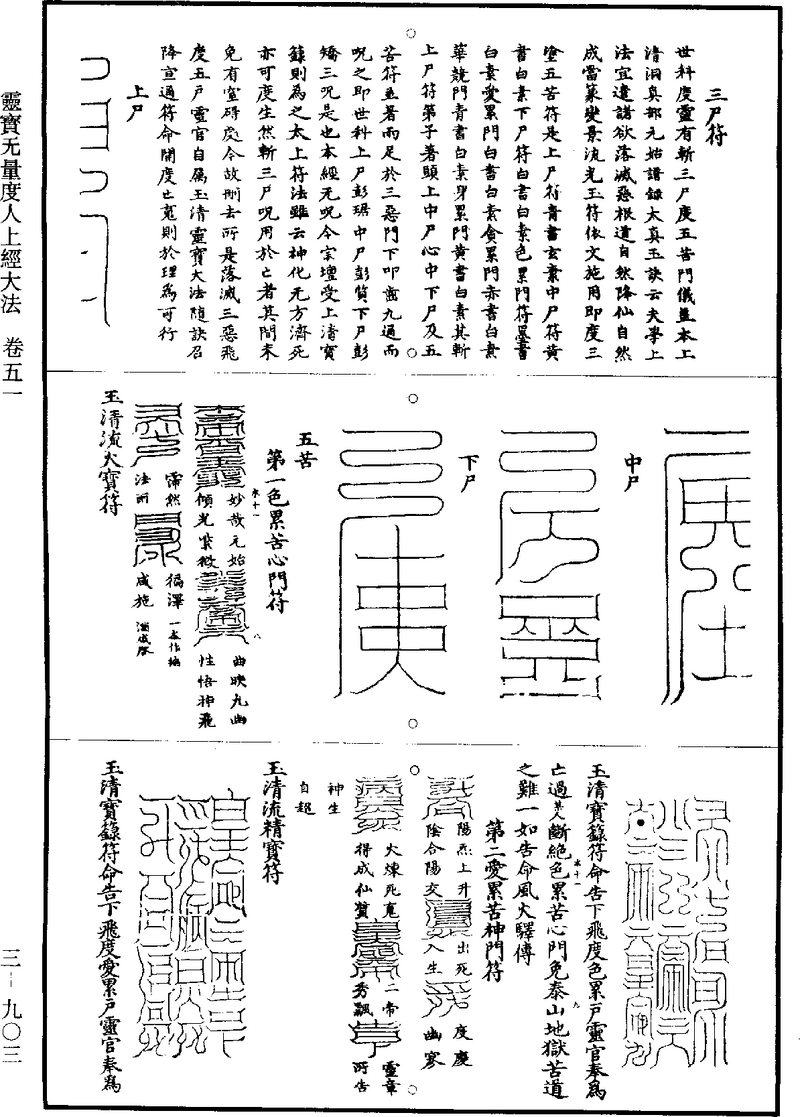 靈寶无量度人上經大法　卷五一
三－九〇三
三尸符
世科度靈有斬三尸度五苦門儀蓋本上
清洞真部元始譜錄太真玉訣云夫學上
法宜遵諸欲落滅惡根道自然降仙自然
成當篆變景流光玉符依文施用即度三
塗五苦符是上尸符青書玄素中尸符黃
書白素下尸符白書白素色累門符墨書
白素愛累門白書白素貪累門赤書白素
華競門青書白素身累門黃書白素其斬
上尸符第子著頭上中尸心中下尸及五
苦符並著兩足於三惡門下叩齒九過而
呪之即世科上尸彭琚中尸彭質下尸彭
矯三呪是也本經无呪今宗壇受上清寶
籙則為之太上符法雖云神化无方濟死
亦可度生然斬三尸呪用於亡者其間未
免有窒碍處今故刪去所是落滅三惡飛
度五戶靈官自屬玉清靈寶大法隨訣召
降宣通符命開度亡䰟則於理為可行
上尸
中尸
下尸
五苦
第一色累苦心門符
妙哉元始
傾光紫微
曲映九幽
性悟神飛
霈然
法雨
徧澤
咸施
玉清流火寶符
玉清寶籙符命告下飛度色累尸靈官奉為
亡過某人斷絕色累苦心門免泰山地獄苦道
之難一如告命風火驛傳
第二愛累苦神門符
陽炁上升
陰合陽交
出死
入生
度慶
幽寥
火煉死䰟
得成仙質
二帝
秀飄
靈章
所告
神生
自超
玉清流精寶符
玉清寶籙符命告下飛度愛累尸靈官奉為